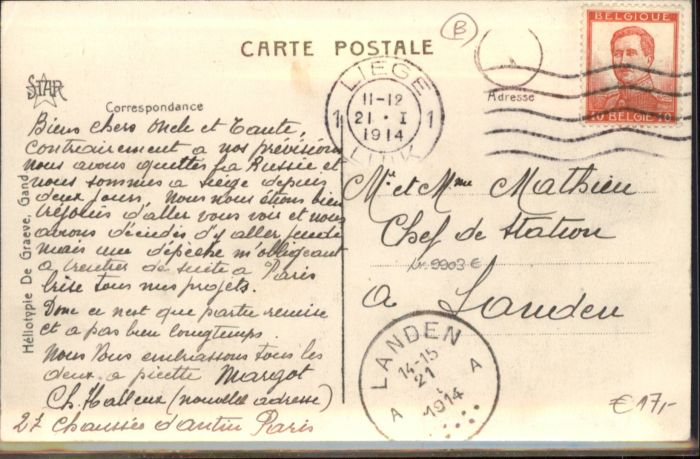 B
CARTE POSTALE
BELGIQUE
10 BELGIE 10
LIEGE
1 11-12 1
21 • I
1914
LUIK
STAR
Correspondance
Adresse
Biens chers oncle et tante,
Contrairement a nos prévisions
nous avons quitter la Russie et
nous sommes a Liège depuis
deux jours. Nous nous étions bien
réjouis d'aller vous voir et nous
avions décidés d'y aller jeudi
mais une dépêche m'obligeant
a rentrer de suite a Paris
brise tous mes projets.
Donc ce nest que partie remise
et a pas bien longtemps.
Nous Vous embrassons tous les
deux a picette Margot
Ch. Halleux (nouvelle adresse)
27 Chaussée d'antin Paris
Mr et Mme Mathieu
Chef de Station
Lr. 9903 €
a Landen
LANDEN
14-15
21
1914
A A
€ 17,-
Héliotypie De Graeve, Gand